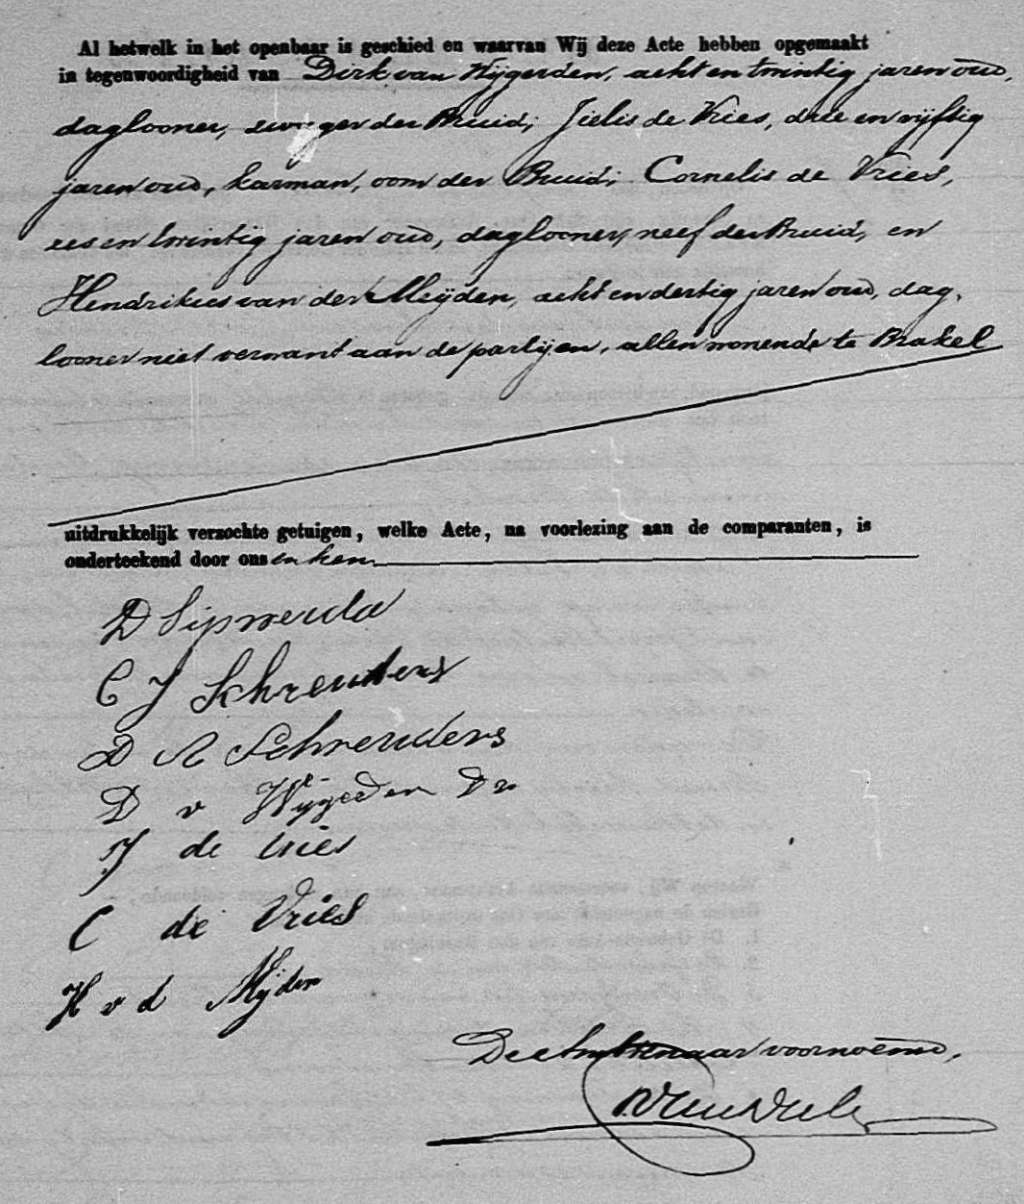 Al hetwelk in het openbaar is geschied en waarvan Wij deze Acte hebben opgemaakt
in tegenwoordigheid van Dirk van Wijgerden, acht en twintig jaren oud,
daglooner, zwager der Bruid; Jielis de Vries, drie en vijftig
jaren oud, karman, oom der Bruid; Cornelis de Vries,
een en twintig jaren oud, daglooner, neef der Bruid, en
Hendrikus van der Meijden, acht en dertig jaren oud, dag,
looner niet verwant aan de partijen, allen wonende te Brakel
uitdrukkelijk verzochte getuigen, welke Acte, na voorlezing aan de comparanten, is
onderteekend door ons en hen
D Sipwerda
C J Schreuders
D A Schreuders
D v Wijgerden Dz
J de Vries
C de Vries
H v d Mijden
De Ambtenaar voornoemd,